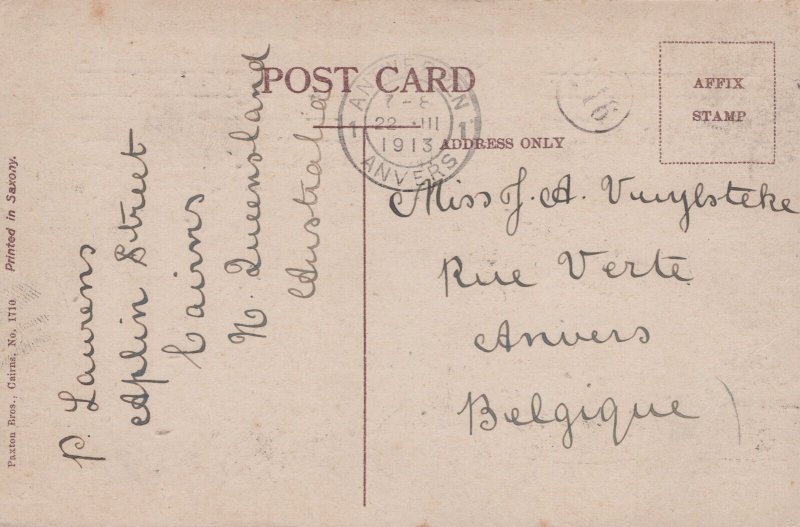 POST CARD
AFFIX
STAMP
ADDRESS ONLY
ANTWERPEN
1 1
22 III
1913
ANVERS
16
P. Laurens
Aplin Street
Cairns
N. Queensland
Australia
Miss J. A. Vuylsteke
Rue Verte
Anvers
Belgique
Paxton Bros., Cairns, No. 1710 Printed in Saxony.